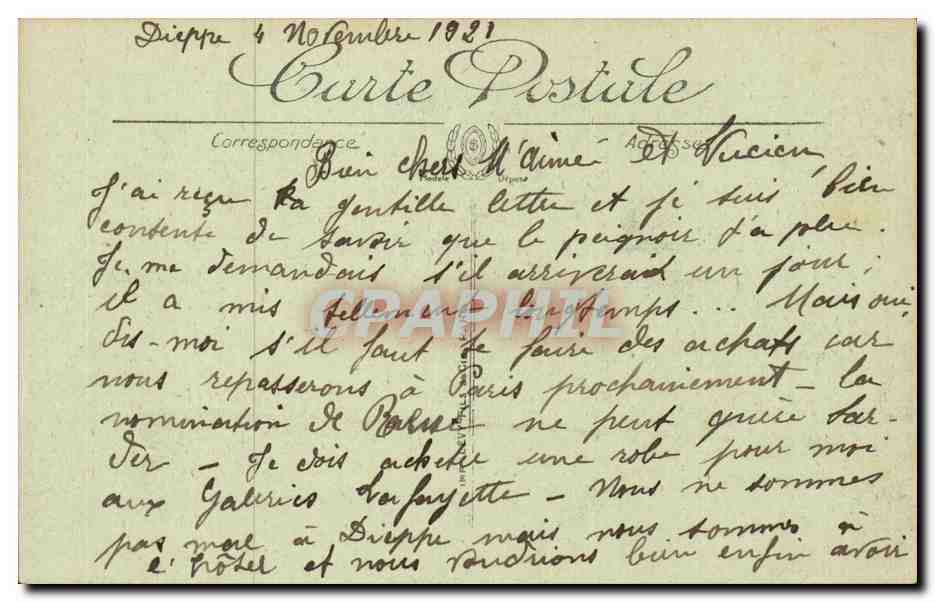 Dieppe 4 Novembre 1921
Carte Postale
Correspondance Adresse
Bien chers M'aimé et Lucien,
Modèle Déposé
J'ai reçu ta gentille lettre et je suis bien
contente de savoir que le peignoir t'a plu.
Je me demandais s'il arriverait un jour ;
il a mis tellement longtemps... Mais oui
dis-moi s'il faut te faire des achats car
nous repasserons à Paris prochainement - la
nomination de ne peut guère tar-
der - Je dois acheter une robe pour moi
aux Galeries Lafayette - Nous ne sommes
pas mal à Dieppe mais nous sommes à
l'hôtel et nous voudrions bien enfin avoir
CPAPHIL